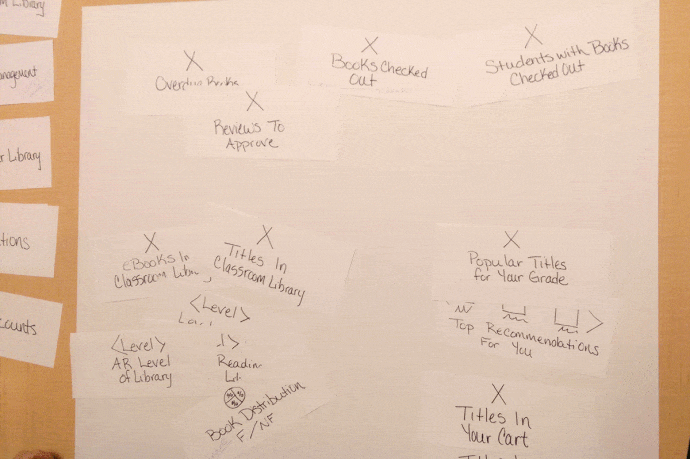 Library
anagement
r Library
tions
counts
X
Books Checked
Out
X
Students with Books
Checked Out
X
X
Reviews To
Approve
X
eBooks In
Classroom
X
Titles In
Classroom Library
<Level>
<Level>
AR Level
of Library
Book Distribution
F/NF
X
Popular Titles
for Your Grade
Top Recommendations
For You
X
Titles In
Your Cart